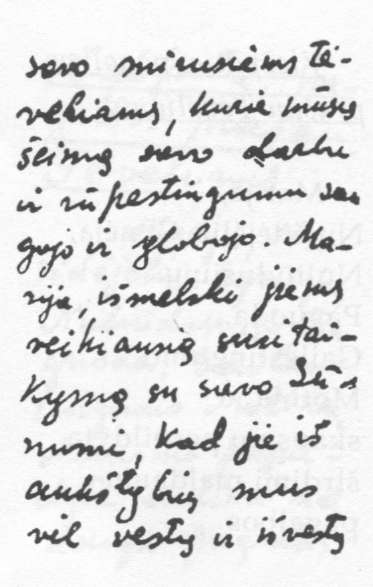 savo mirusiems tė-
veliams, kurie mūsų
šeimą savo darbu
ir rūpestingumu sau
gojo ir globojo. Ma-
rija, išmelski jiems
veikiausią susitai-
kymą su savo Sū-
numi, kad jie iš
aukštybių mus
vėl vestų ir išvestų